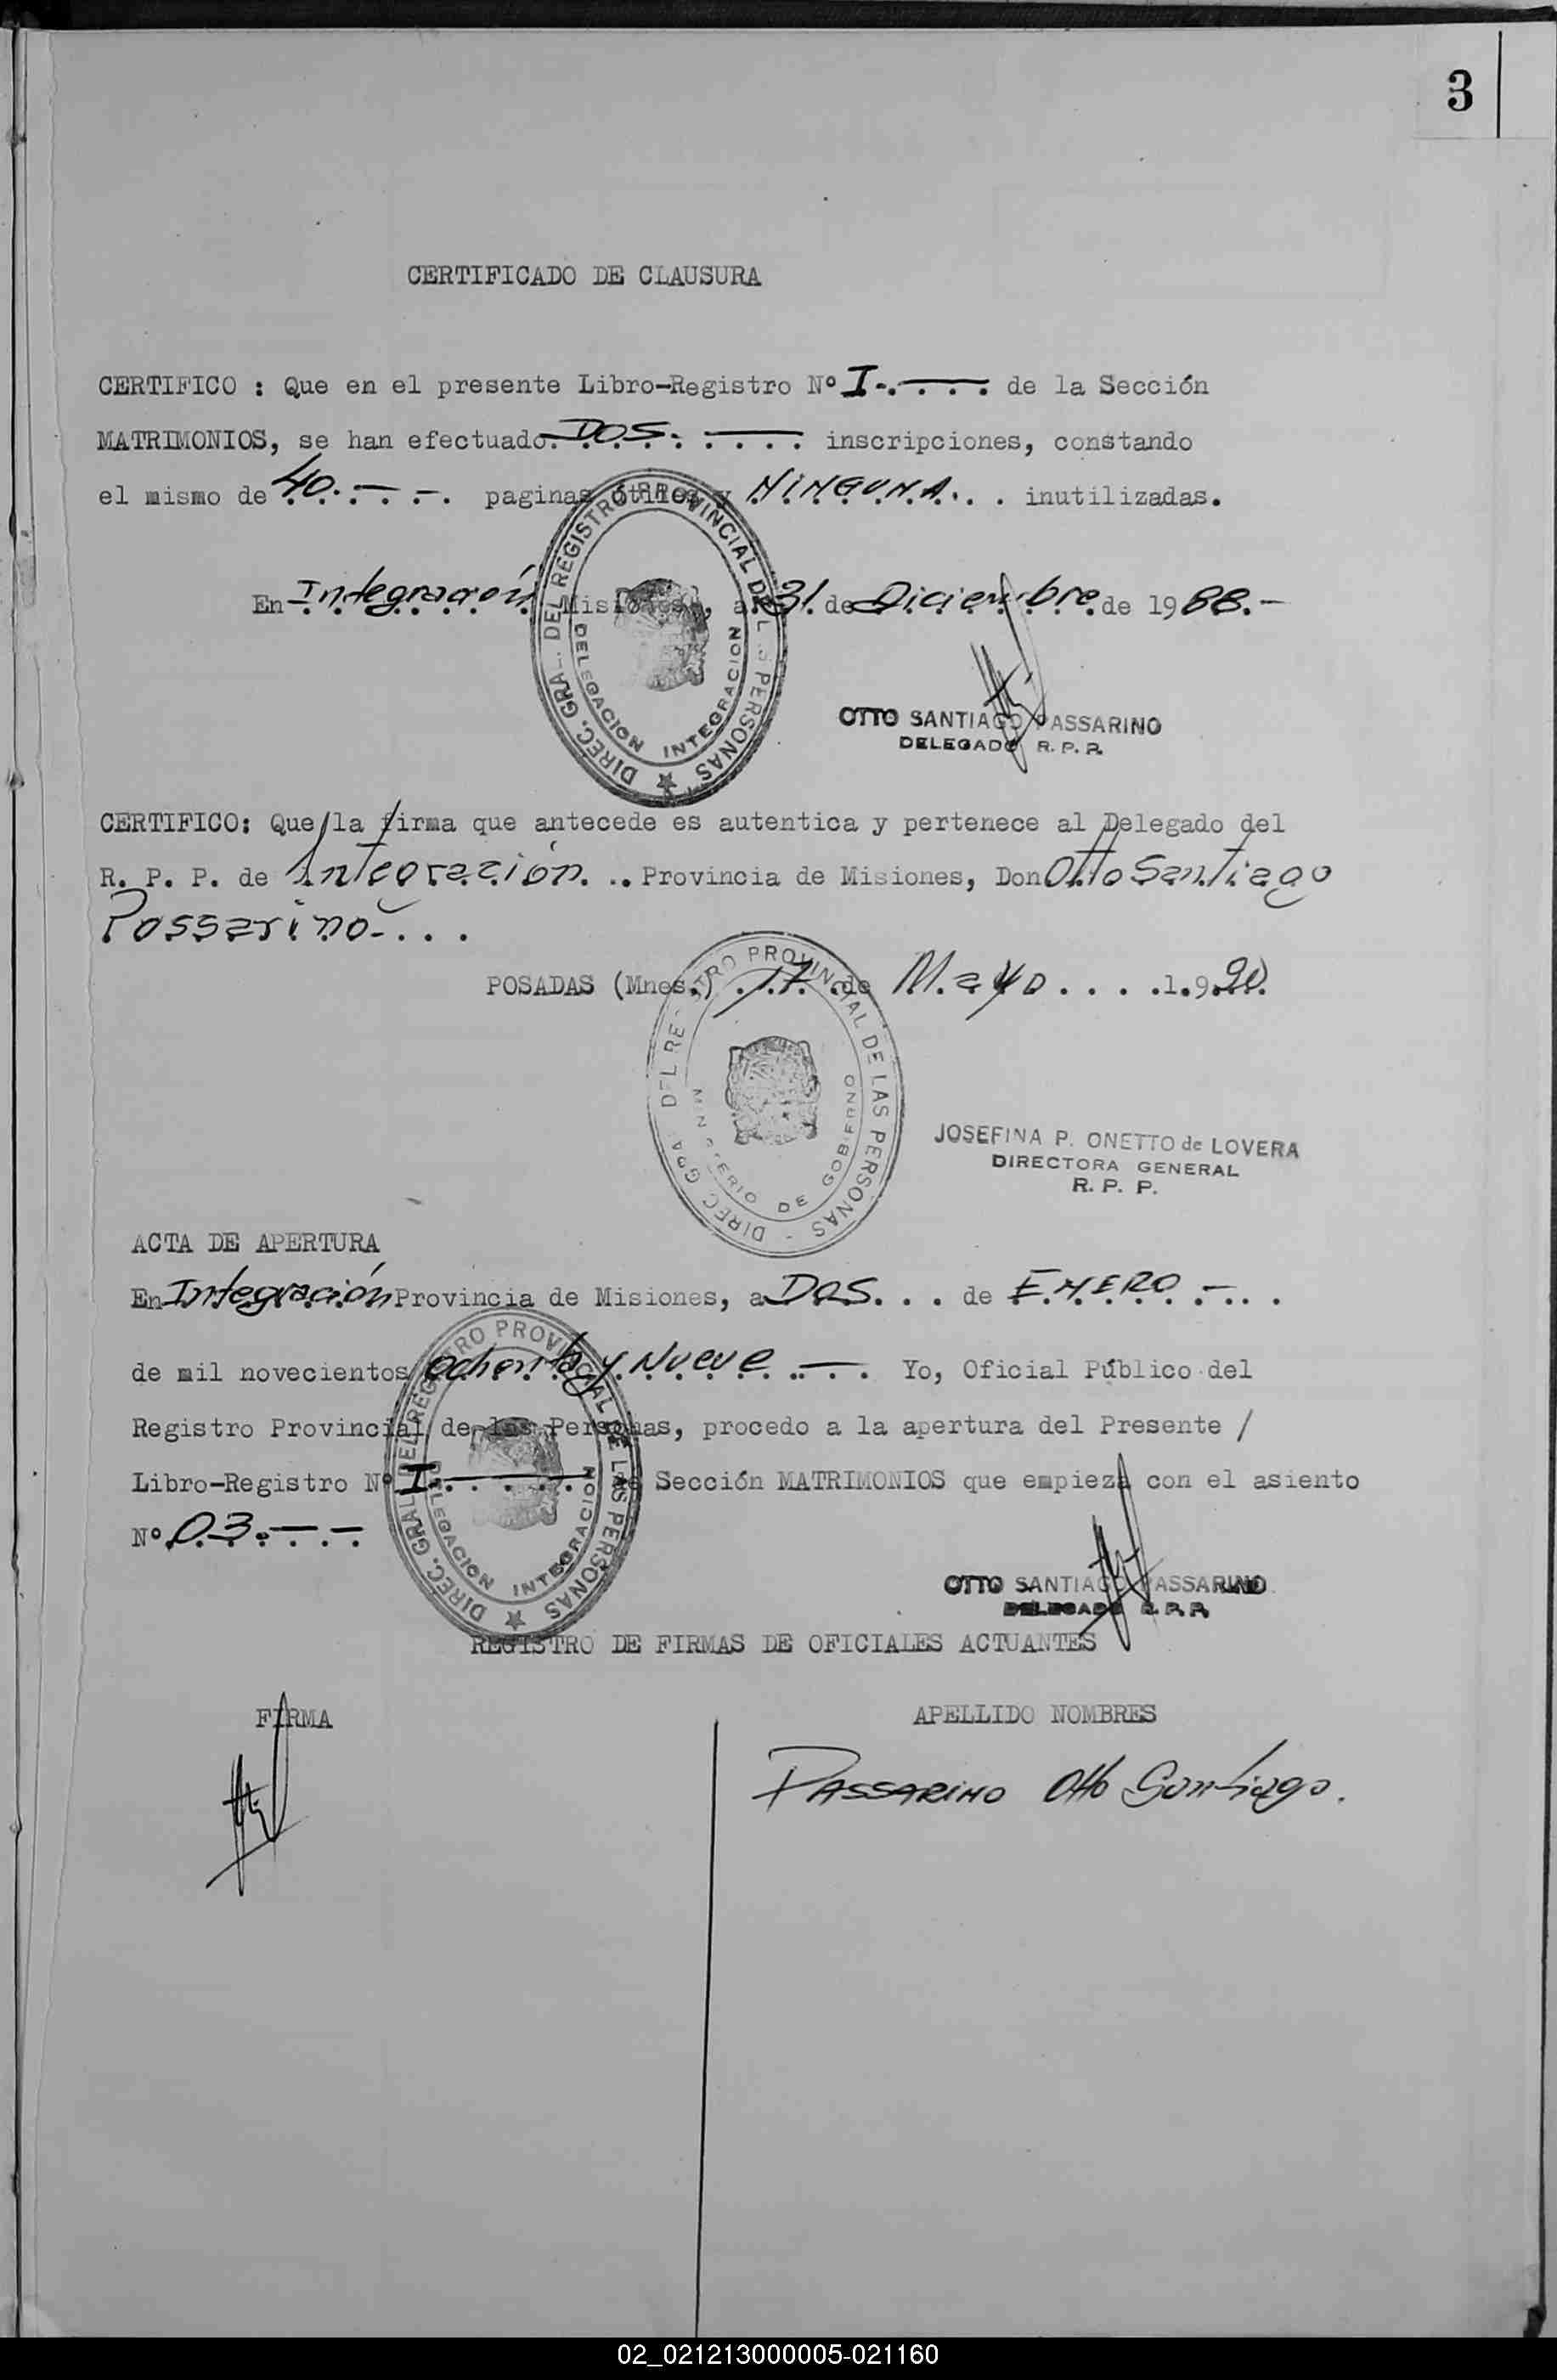 3
CERTIFICADO DE CLAUSURA
CERTIFICO : Que en el presente Libro-Registro Nº I-. . . . . de la Sección
MATRIMONIOS, se han efectuado. DOS. . . . . inscripciones, constando
el mismo de 40. . - . -. paginas útiles y NINGUNA. . . inutilizadas.
En Integración Misiones, a 31 de Diciembre de 1988.-
DIREC. GRAL. DEL REGISTRO PROVINCIAL DE LAS PERSONAS
DELEGACION INTEGRACION
OTTO SANTIAGO PASSARINO
DELEGADO R. P. P.
CERTIFICO: Que/la firma que antecede es autentica y pertenece al Delegado del
R. P. P. de Integración. .. Provincia de Misiones, Don Otto Santiago
Passarino-. . .
POSADAS (Mnes.) 17 de Mayo . . . . .1.990.
DIREC GRAL DEL REGISTRO PROVINCIAL DE LAS PERSONAS -
MINISTERIO DE GOBIERNO
JOSEFINA P. ONETTO de LOVERA
DIRECTORA GENERAL
R. P. P.
ACTA DE APERTURA
En Integración Provincia de Misiones, a DOS. . . de ENERO - . . .
de mil novecientos ochenta y Nueve . . — . Yo, Oficial Público del
Registro Provincial de las Personas, procedo a la apertura del Presente /
Libro-Registro Nº I. . . . . . de Sección MATRIMONIOS que empieza con el asiento
Nº 03. - . -
DIREC. GRAL. DEL REGISTRO PROVINCIAL DE LAS PERSONAS
DELEGACION INTEGRACION
OTTO SANTIAGO PASSARINO
DELEGADO R. P. P.
REGISTRO DE FIRMAS DE OFICIALES ACTUANTES
FIRMA
APELLIDO NOMBRES
PASSARINO Otto Santiago.
02_021213000005-021160